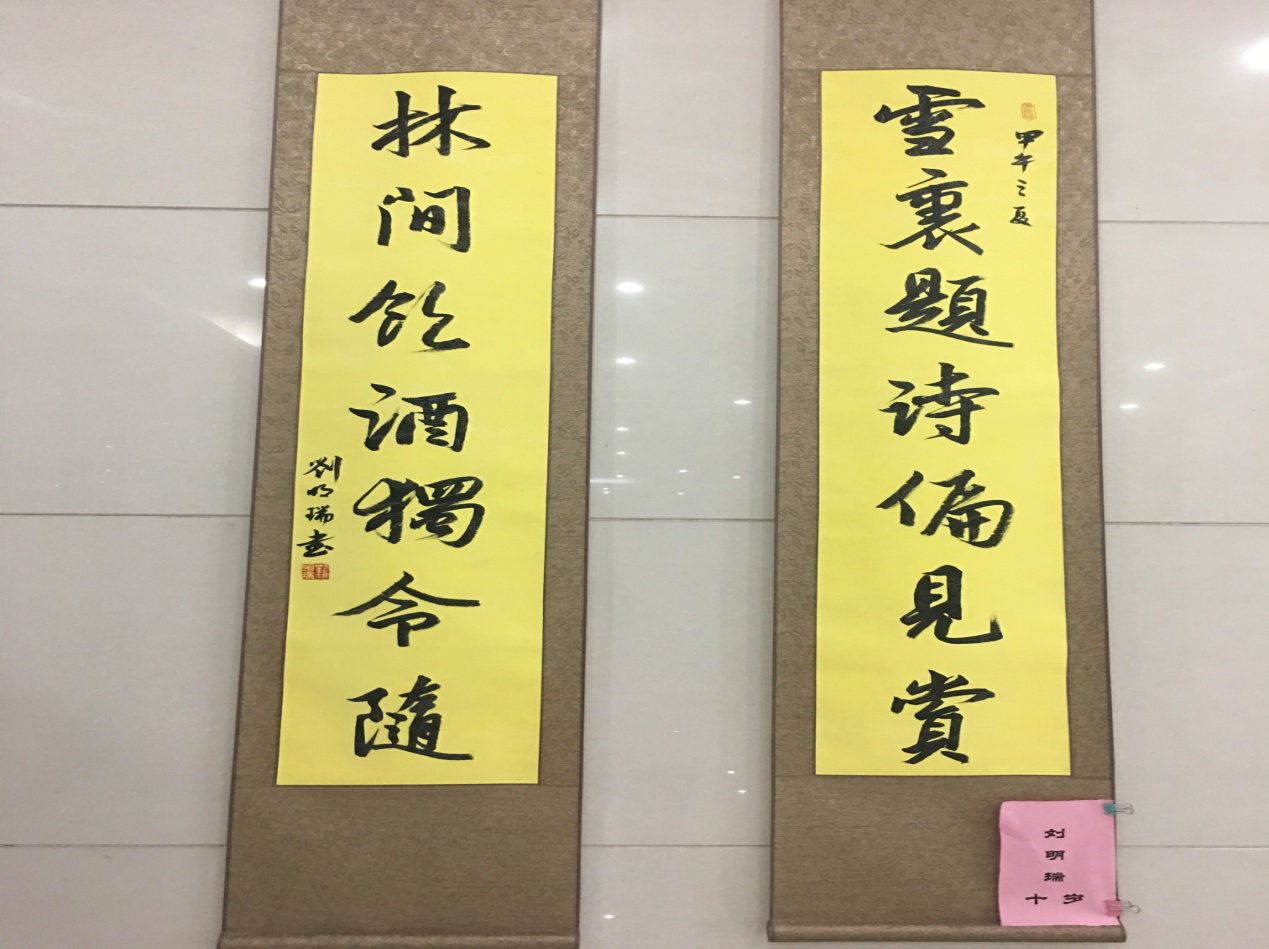 甲午之夏
雪裏題詩偏見賞
林間飲酒獨令隨
劉明瑞書
刘
明
瑞
十岁